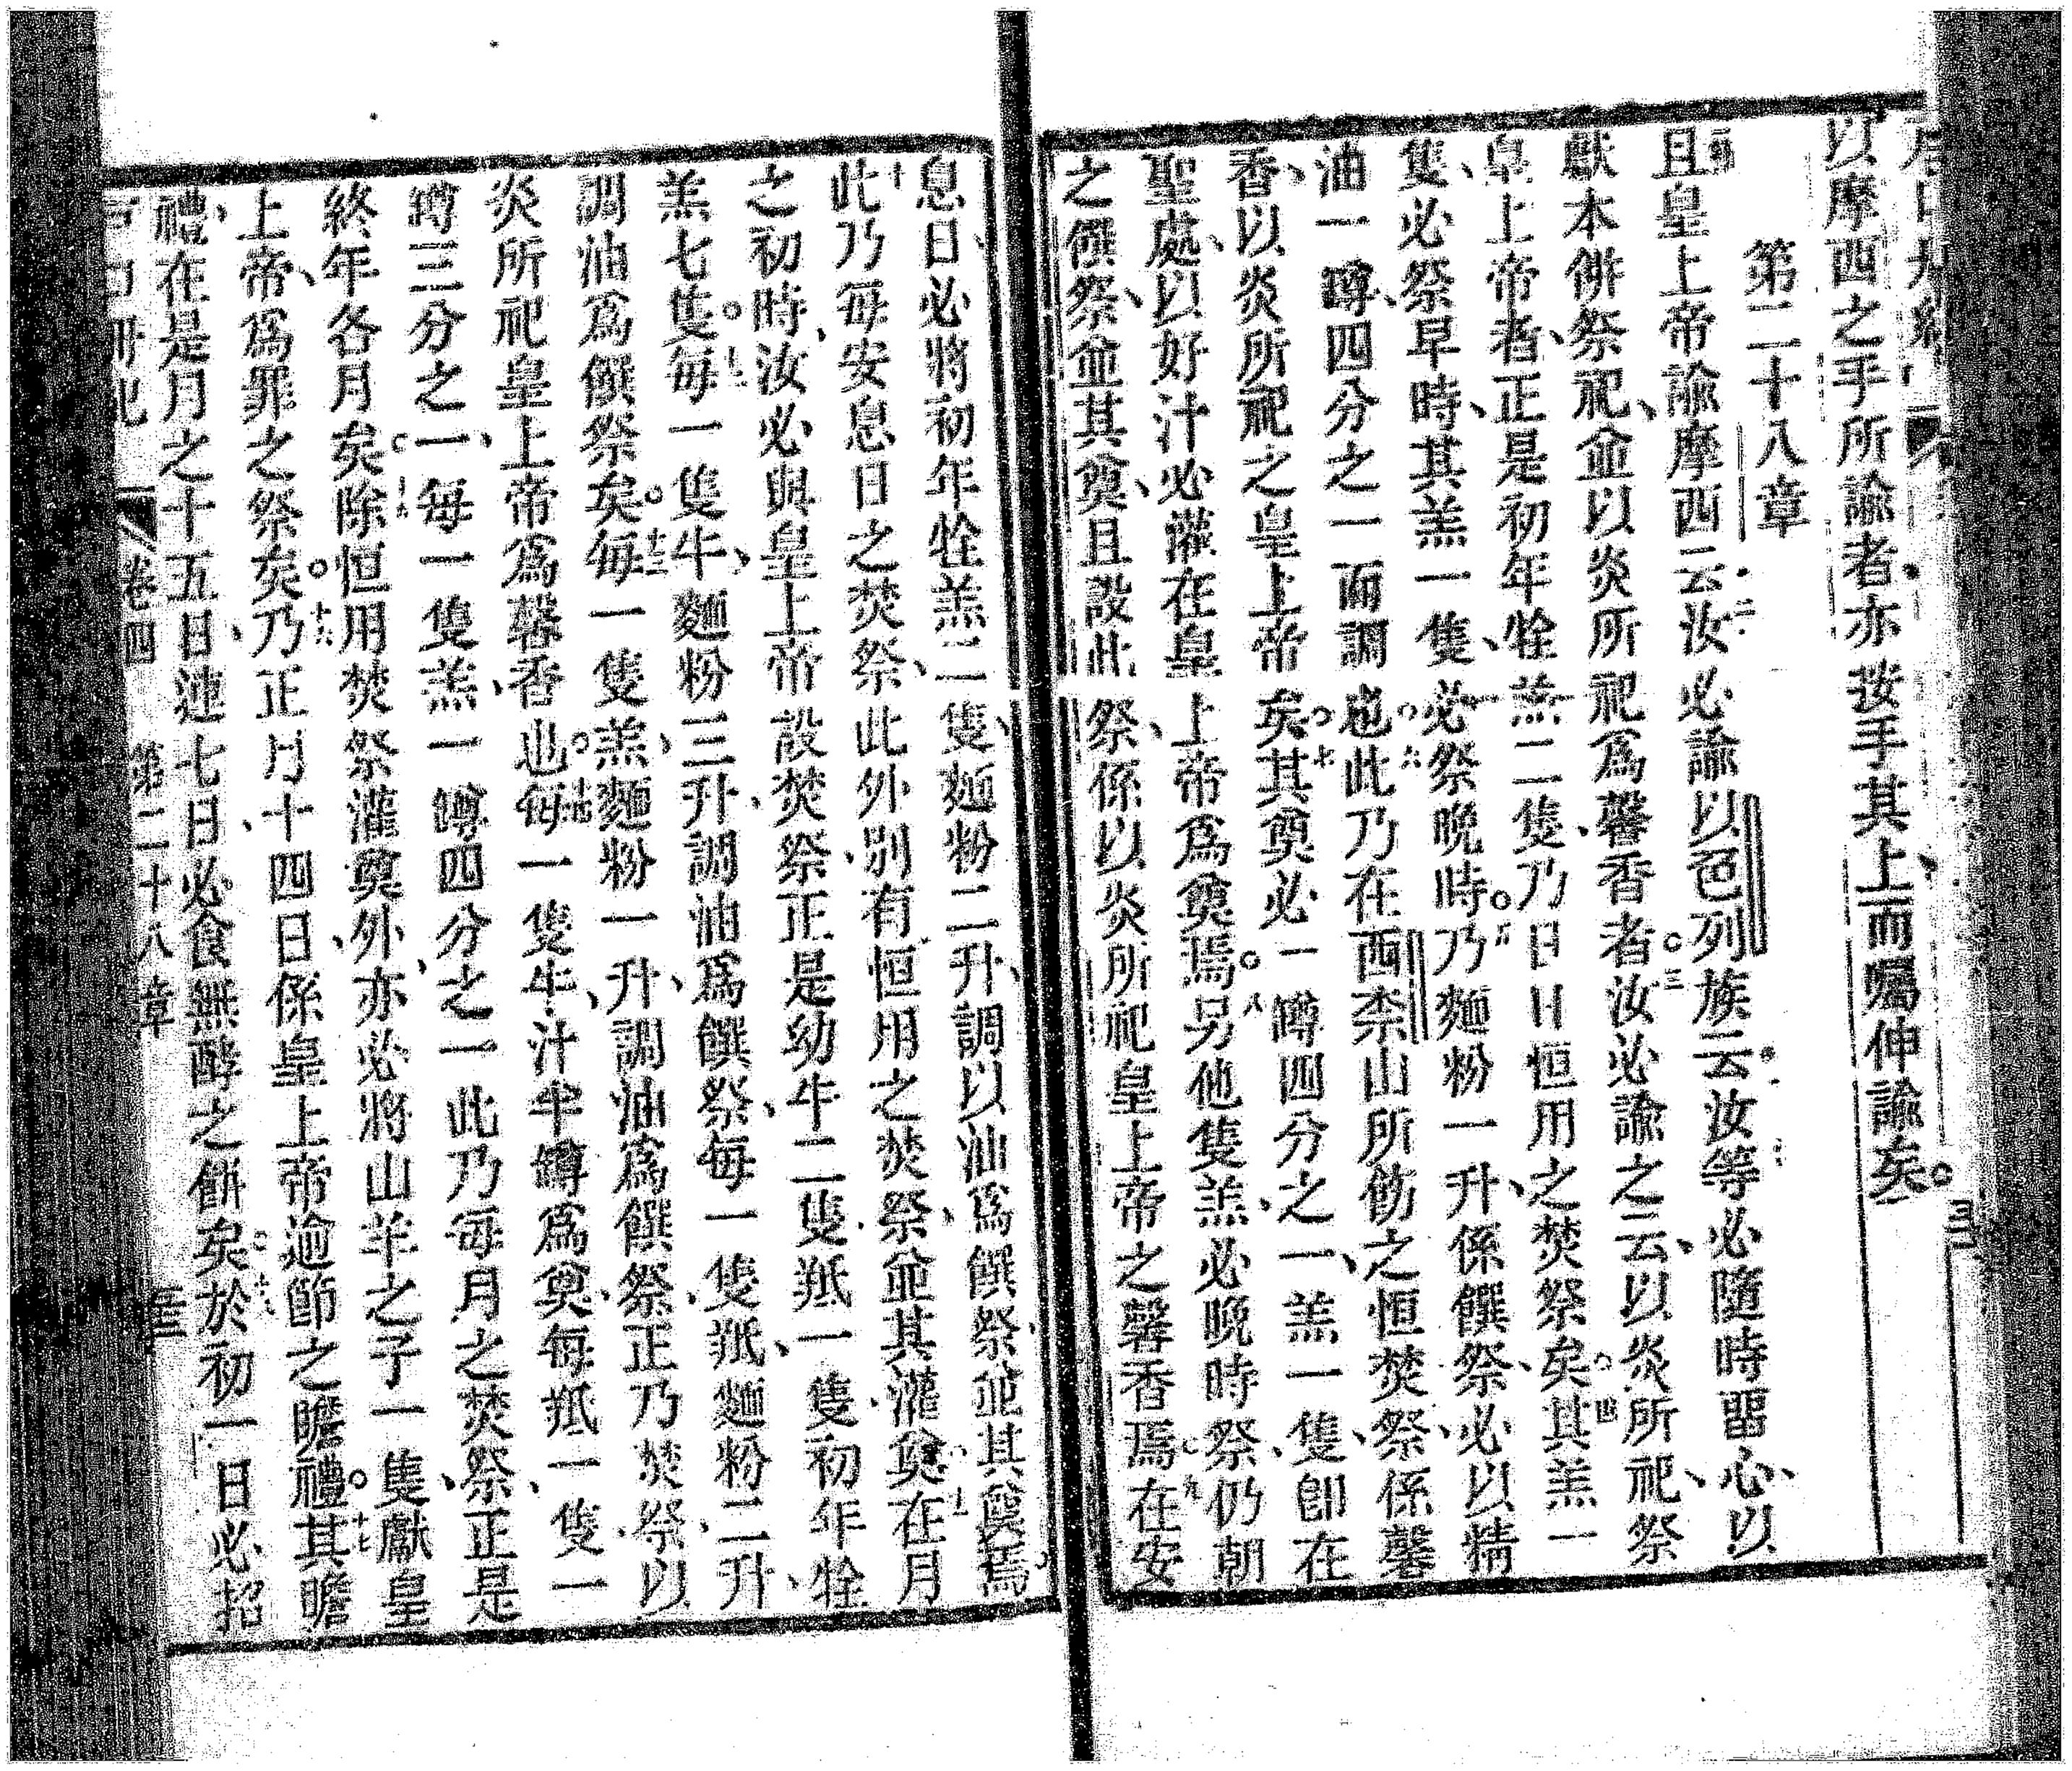 以摩西之手所諭者亦按手其上而囑伸諭矣
第二十八章
且皇上帝諭摩西云汝必諭以色列族云汝等必隨時畱心以
獻本併祭祀並以炎所祀爲馨香者汝必諭之云以炎所祀祭
皇上帝者正是初年牷羔二隻乃日日恒用之焚祭矣其羔一
隻必祭早時其羔一隻必祭晚時乃麵粉一升係饌祭必以精
油一罇四分之一而調也此乃在西柰山所飭之恒焚祭係馨
香以炎所祀之皇上帝矣其奠必一罇四分之一羔一隻卽在
聖處以好汁必灌在皇上帝爲奠焉另他隻羔必晚時祭仍朝
之饌祭並其奠且設此祭係以炎所祀皇上帝之馨香焉在安
息日必將初年牷羔二隻麵粉二升調以油爲饌祭並其奠焉
此乃每安息日之焚祭此外別有恒用之焚祭並其灌奠在月
之初時汝必與皇上帝設焚祭正是幼牛二隻羝一隻初年牷
羔七隻每一隻牛麵粉三升調油爲饌祭每一隻羝麵粉二升
調油爲饌祭矣每一隻羔麵粉一升調油爲饌祭正乃焚祭以
炎所祀皇上帝爲馨香也每一隻牛汁半罇爲奠每羝一隻一
罇三分之一每一隻羔一罇四分之一此乃每月之焚祭正是
終年各月矣除恒用焚祭灌奠外亦必將山羊之子一隻獻皇
上帝爲罪之祭矣乃正月十四日係皇上帝逾節之瞻禮其瞻
禮在是月之十五日連七日必食無酵之餅矣於初一日必招
卷四 第二十八章